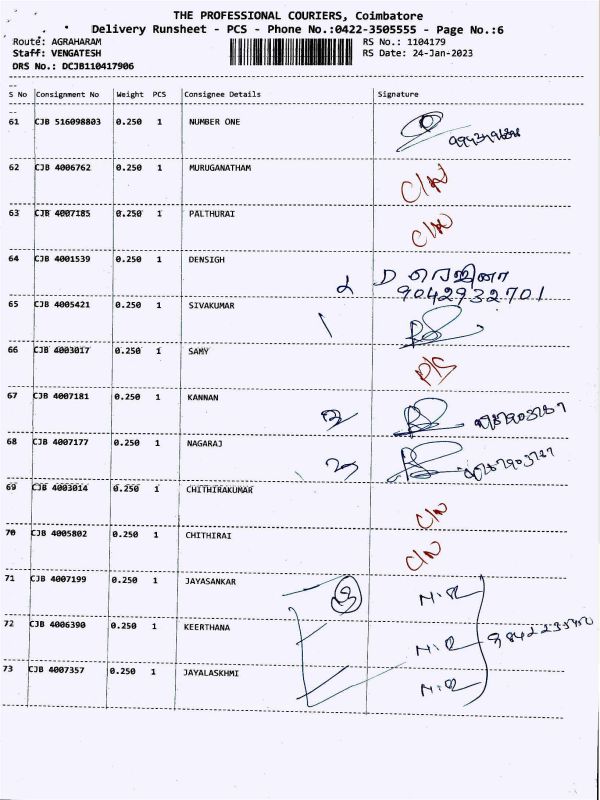 THE PROFESSIONAL COURIERS, Coimbatore
Delivery Runsheet - PCS - Phone No.:0422-3505555 - Page No.:6
Route: AGRAHARAM RS No.: 1104179
Staff: VENGATESH RS Date: 24-Jan-2023
DRS No.: DCJB110417906
S No Consignment No Weight PCS Consignee Details Signature
61 CJB 516098803 0.250 1 NUMBER ONE
62 CJB 4006762 0.250 1 MURUGANATHAM C/N
63 CJB 4007185 0.250 1 PALTHURAI C/N
64 CJB 4001539 0.250 1 DENSIGH
9042932701
65 CJB 5005421 0.250 1 SIVAKUMAR
66 CJB 4003017 0.250 1 SAMY P/S
67 CJB 4007181 0.250 1 KANNAN
68 CJB 4007177 0.250 1 NAGARAJ
69 CJB 4003014 0.250 1 CHITHIRAKUMAR C/N
70 CJB 4005802 0.250 1 CHITHIRAI C/N
71 CJB 4007199 0.250 1 JAYASANKAR 3
72 CJB 4006390 0.250 1 KEERTHANA
73 CJB 4007357 0.250 1 JAYALASKHMI